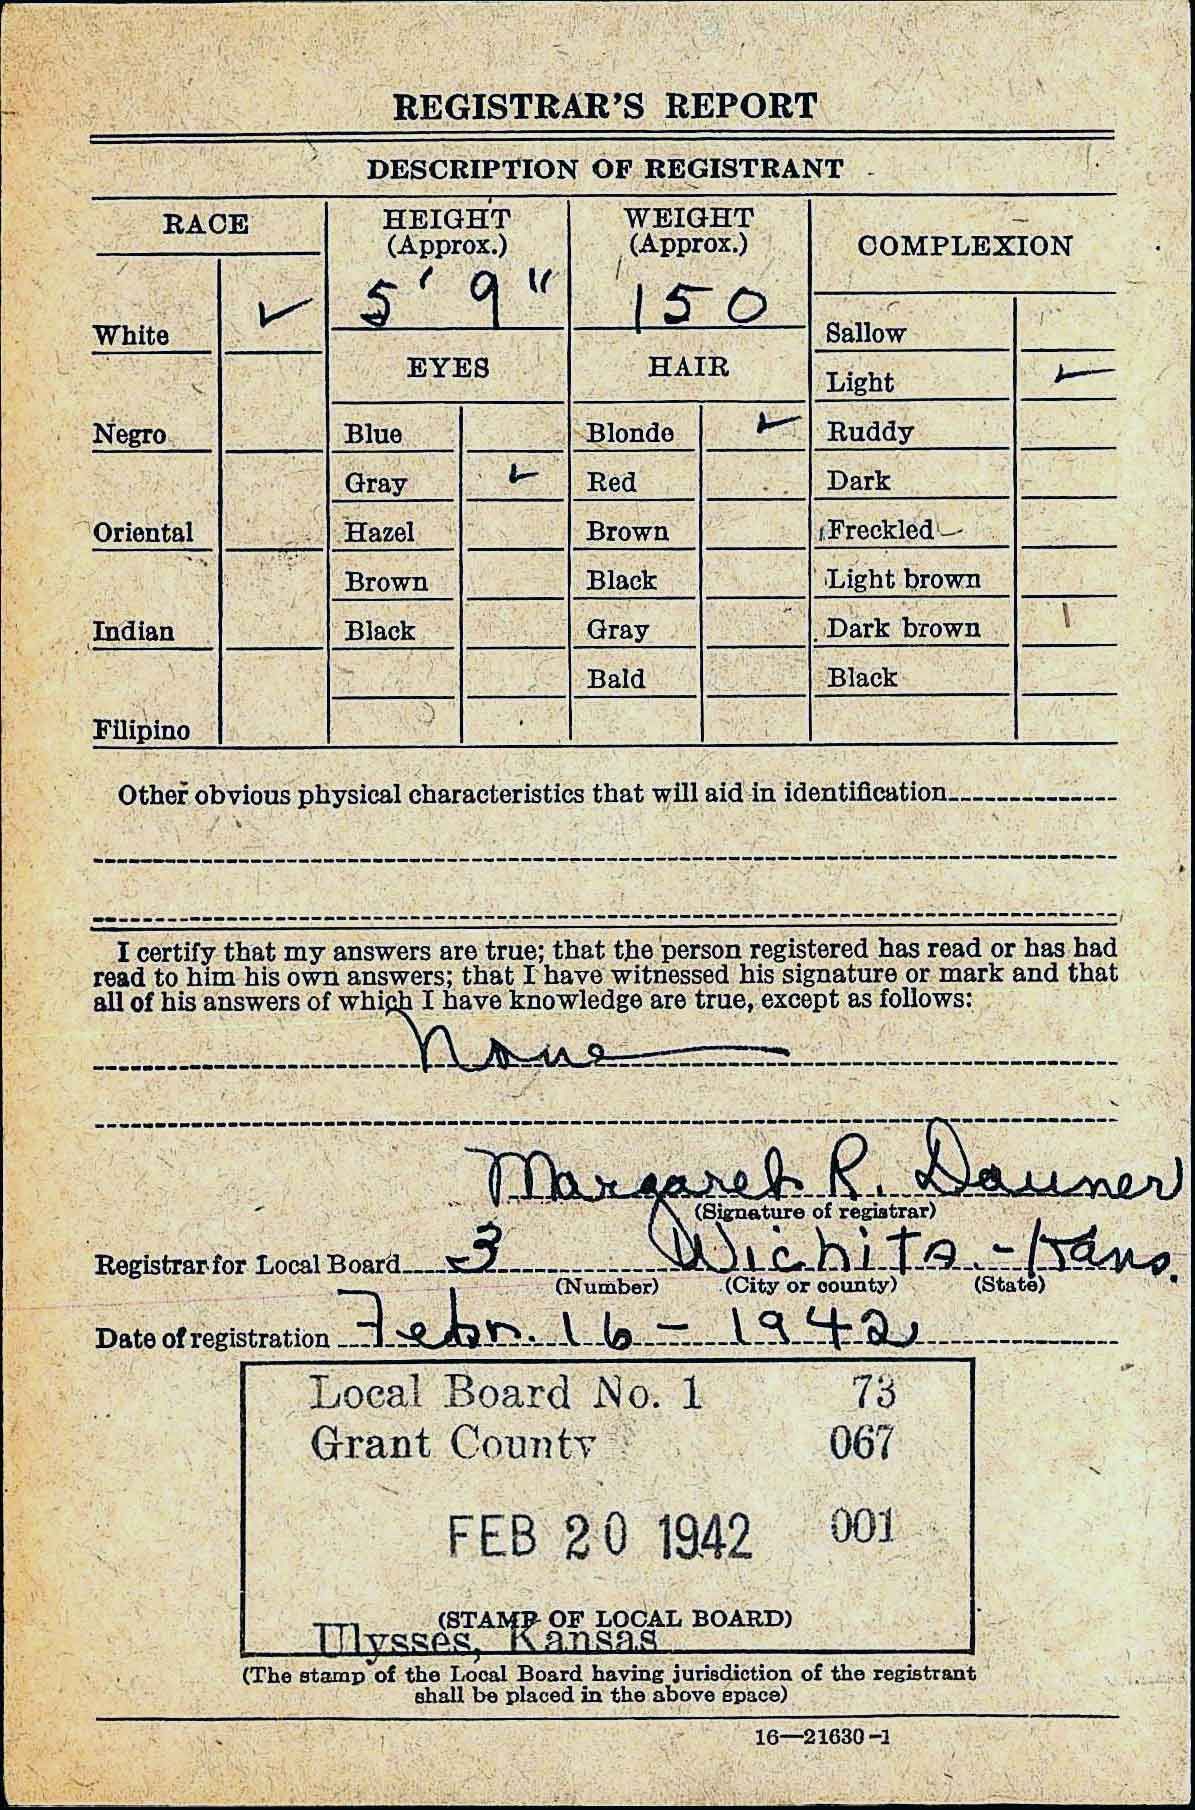 REGISTRAR'S REPORT
DESCRIPTION OF REGISTRANT
RACE
HEIGHT
(Approx.)
WEIGHT
(Approx.)
COMPLEXION
5' 9"
150
White ✓
Sallow
EYES
HAIR
Light ✓
Negro
Blue
Blonde ✓
Ruddy
Gray ✓
Red
Dark
Oriental
Hazel
Brown
Freckled
Brown
Black
Light brown
Indian
Black
Gray
Dark brown
Bald
Black
Filipino
Other obvious physical characteristics that will aid in identification
I certify that my answers are true; that the person registered has read or has had
read to him his own answers; that I have witnessed his signature or mark and that
all of his answers of which I have knowledge are true, except as follows:
None
Margaret R. Dauner
(Signature of registrar)
Registrar for Local Board 3 Wichita - Kans.
(Number) (City or county) (State)
Date of registration Febr. 16 - 1942
Local Board No. 1 73
Grant County 067
FEB 20 1942 001
(STAMP OF LOCAL BOARD)
Ulysses, Kansas
(The stamp of the Local Board having jurisdiction of the registrant
shall be placed in the above space)
16—21630-1